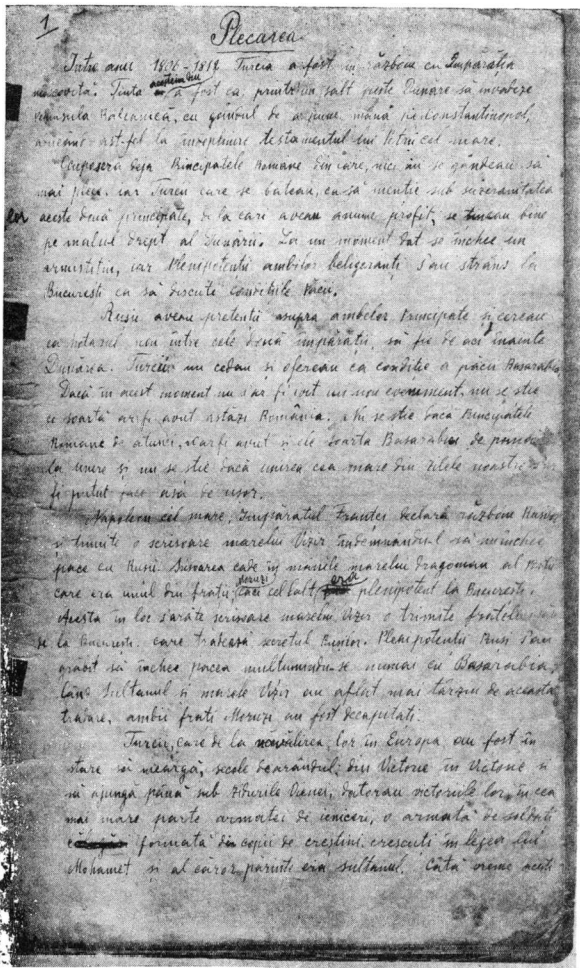 1
Plecarea
Între anii 1806-1812 Turcia a fost în războiu cu Împărăția
moscovită. Ținta acesteia a fost ca printr'un salt peste Dunăre să invadeze
Peninsula Balcanică, cu gândul de a pune mâna pe Constantinopol,
ast-fel la îndeplinire testamentul lui Petru cel mare.
Ocupaseră deja Principatele Române din care, nici nu se gândeau să
mai plece, iar Turcii care se băteau, ca să mentie sub suveranitatea
lor aceste două principate, de la cari aveau anume profit, se țineau bine
pe malul drept al Dunării. La un moment dat se închee un
armistițiu, iar Plenipotenții ambilor beligeranți s'au strâns la
București ca să discute condițiile Păcii.
Rușii aveau pretenții asupra ambelor Principate și cereau
ca hotarul nou între cele două împărății, să fie de aci înainte
Dunărea. Turcii nu cedau și ofereau ca condiție a păcii Basarabia.
Dacă în acest moment nu s'ar fi ivit un nou eveniment, nu se știe
ce soartă ar fi avut astăzi România. Nu se știe dacă Principatele
Române de atunci, n'ar fi avut și ele soarta Basarabiei de până
la unire și nu se știe dacă unirea cea mare din zilele noastre s'ar
fi putut face așă de ușor.
Napoleon cel mare, Împăratul Franței declară războiu Rusiei
și trimite o scrisoare marelui Vizir îndemnându-l să nu închee
pace cu Rușii. Scrisoarea cade în mâinile marelui dragoman al Porții
care era unul din frații Moruzi căci celălalt era plenipotent la București.
Acesta în loc s'arate scrisoarea marelui Vizir o trimite fratelui său
la București care trădează secretul Rușilor. Plenipotenții Ruși s'au
grăbit să închee pacea mulțumindu-se numai cu Basarabia.
Când Sultanul și marele Vizir au aflat mai târziu de această
trădare, ambii frați Moruzi au fost decapitați.
Turcii, care de la năvălirea lor în Europa au fost în
stare să meargă, secole dearândul, din Victorie în Victorie și
să ajungă până sub zidurile Vienei, datorau victoriile lor, în cea
mai mare parte armatei de ieniceri, o armată de soldați
formată din copii de creștini crescuți în legea lui
Mohamet și al căror părinte era sultanul. Câtă vreme acești